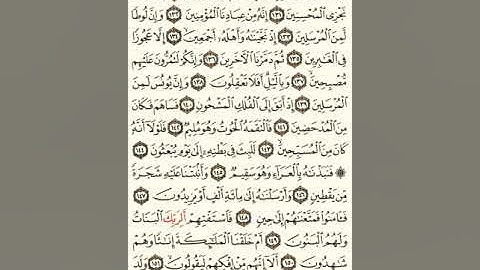 نَجْزِي الْمُحْسِنِينَ ١٣١ إِنَّهُ مِنْ عِبَادِنَا الْمُؤْمِنِينَ ١٣٢ وَإِنَّ لُوطًا
لَّمِنَ الْمُرْسَلِينَ ١٣٣ إِذْ نَجَّيْنَاهُ وَأَهْلَهُ أَجْمَعِينَ ١٣٤ إِلَّا عَجُوزًا
فِي الْغَابِرِينَ ١٣٥ ثُمَّ دَمَّرْنَا الْآخَرِينَ ١٣٦ وَإِنَّكُمْ لَتَمُرُّونَ عَلَيْهِم
مُّصْبِحِينَ ١٣٧ وَبِاللَّيْلِ أَفَلَا تَعْقِلُونَ ١٣٨ وَإِنَّ يُونُسَ لَمِنَ
الْمُرْسَلِينَ ١٣٩ إِذْ أَبَقَ إِلَى الْفُلْكِ الْمَشْحُونِ ١٤٠ فَسَاهَمَ فَكَانَ
مِنَ الْمُدْحَضِينَ ١٤١ فَالْتَقَمَهُ الْحُوتُ وَهُوَ مُلِيمٌ ١٤٢ فَلَوْلَا أَنَّهُ
كَانَ مِنَ الْمُسَبِّحِينَ ١٤٣ لَلَبِثَ فِي بَطْنِهِ إِلَى يَوْمِ يُبْعَثُونَ ١٤٤
۞ فَنَبَذْنَاهُ بِالْعَرَاءِ وَهُوَ سَقِيمٌ ١٤٥ وَأَنبَتْنَا عَلَيْهِ شَجَرَةً
مِّن يَقْطِينٍ ١٤٦ وَأَرْسَلْنَاهُ إِلَى مِائَةِ أَلْفٍ أَوْ يَزِيدُونَ ١٤٧
فَآمَنُوا فَمَتَّعْنَاهُمْ إِلَى حِينٍ ١٤٨ فَاسْتَفْتِهِمْ أَلِرَبِّكَ الْبَنَاتُ
وَلَهُمُ الْبَنُونَ ١٤٩ أَمْ خَلَقْنَا الْمَلَائِكَةَ إِنَاثًا وَهُمْ
شَاهِدُونَ ١٥٠ أَلَا إِنَّهُم مِّنْ إِفْكِهِمْ لَيَقُولُونَ ١٥١ وَلَدَ